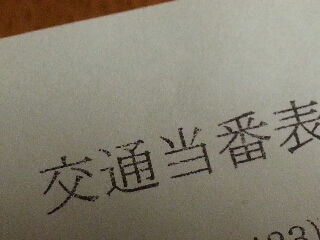 交通当番表
23)